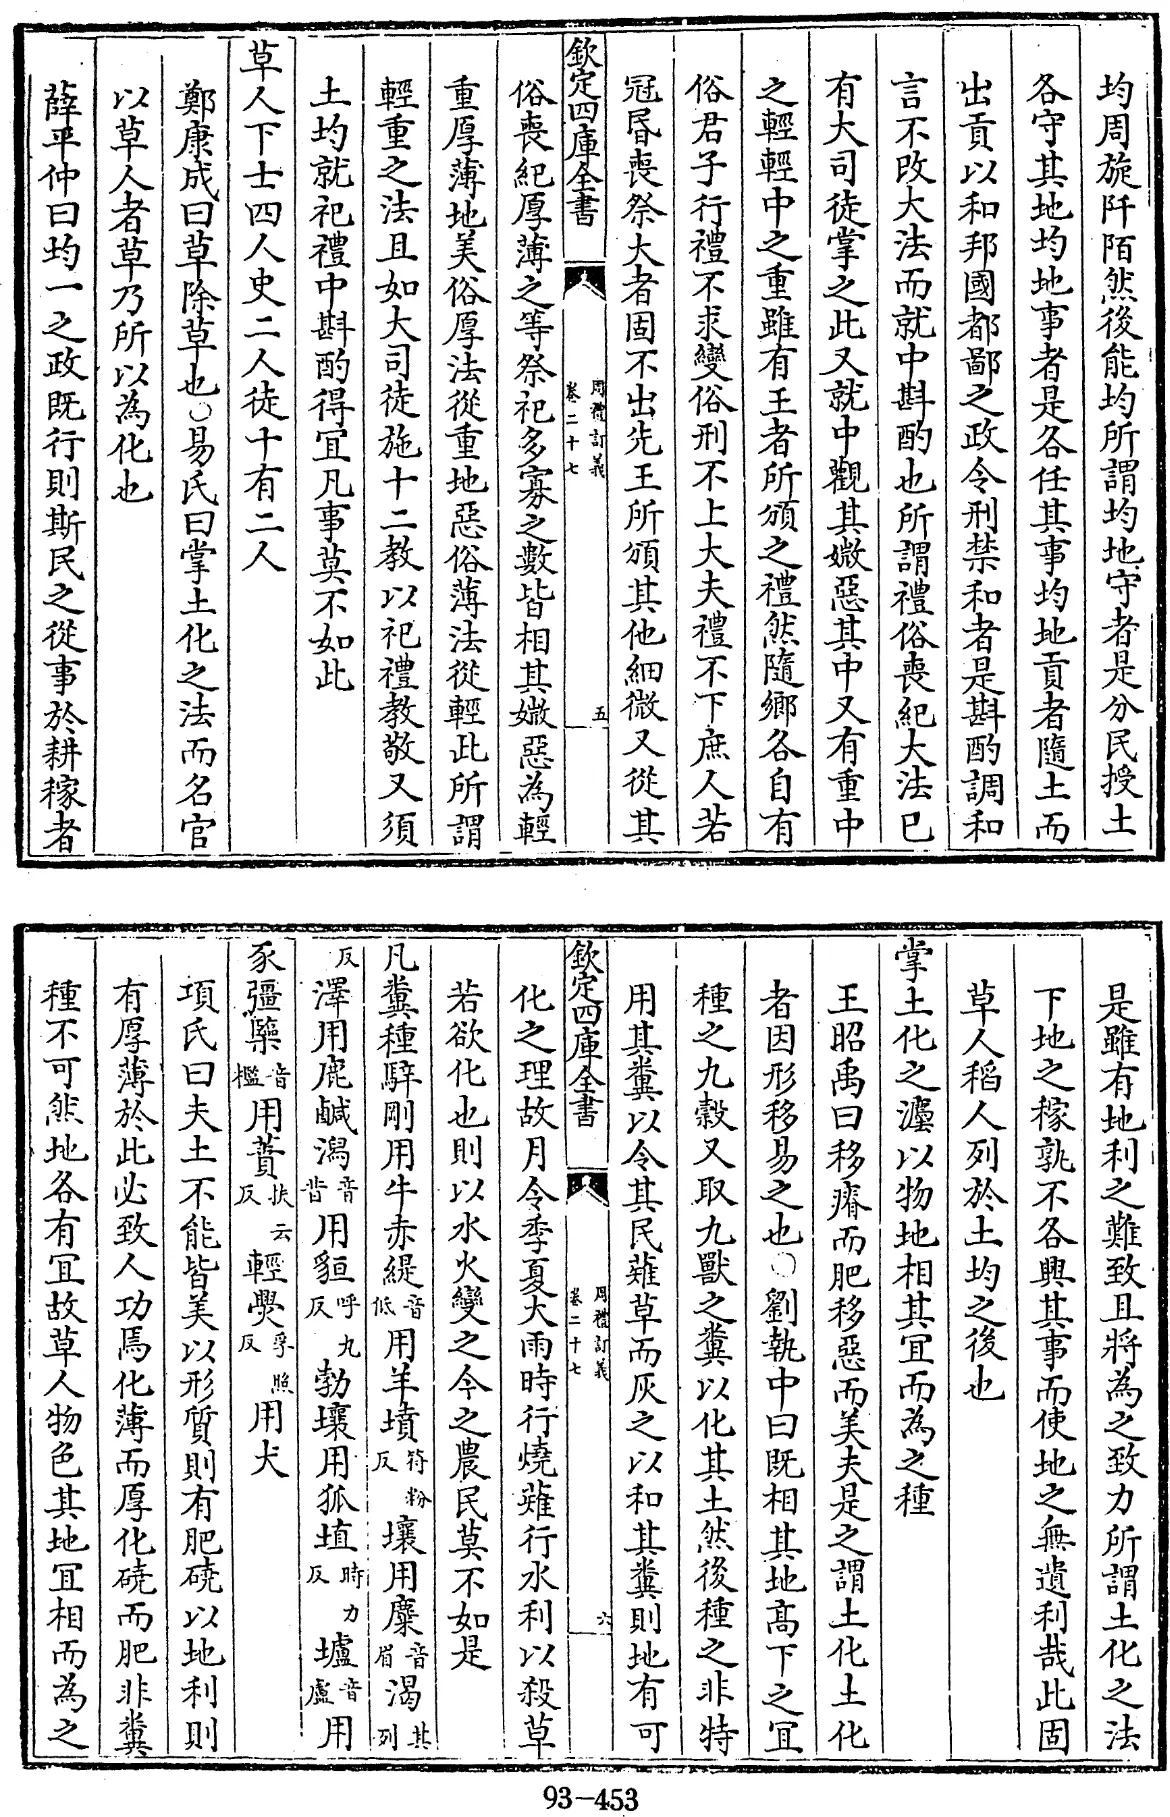 均周旋阡陌然後能均所謂均地守者是分民授土
各守其地均地事者是各任其事均地貢者隨土而
出貢以和邦國都鄙之政令刑禁和者是斟酌調和
言不改大法而就中斟酌也所謂禮俗喪紀大法已
有大司徒掌之此又就中觀其媺惡其中又有重中
之輕輕中之重雖有王者所頒之禮然隨鄉各自有
俗君子行禮不求變俗刑不上大夫禮不下庶人若
冠昏喪祭大者固不出先王所頒其他細微又從其
欽定四庫全書 周禮訂義 卷二十七 五
俗喪紀厚薄之等祭祀多寡之數皆相其媺惡為輕
重厚薄地美俗厚法從重地惡俗薄法從輕此所謂
輕重之法且如大司徒施十二教以祀禮教敬又須
土均就祀禮中斟酌得宜凡事莫不如此
草人下士四人史二人徒十有二人
鄭康成曰草除草也○易氏曰掌土化之法而名官
以草人者草乃所以為化也
薛平仲曰均一之政既行則斯民之從事於耕稼者
是雖有地利之難致且將為之致力所謂土化之法
下地之稼孰不各興其事而使地之無遺利哉此固
草人稻人列於土均之後也
掌土化之灋以物地相其宜而為之種
王昭禹曰移瘠而肥移惡而美夫是之謂土化土化
者因形移易之也○劉執中曰既相其地高下之宜
種之九穀又取九獸之糞以化其土然後種之非特
用其糞以令其民薙草而灰之以和其糞則地有可
欽定四庫全書 周禮訂義 卷二十七 六
化之理故月令季夏大雨時行燒薙行水利以殺草
若欲化也則以水火變之今之農民莫不如是
凡糞種騂剛用牛赤緹音低用羊墳符粉反壤用麋音眉渴其列
反澤用鹿鹹潟音昔用貆呼九反勃壤用狐埴時力反壚音盧用
豕彊㯺音檻用蕡扶云反輕㷅孚照反用犬
項氏曰夫土不能皆美以形質則有肥磽以地利則
有厚薄於此必致人功焉化薄而厚化磽而肥非糞
種不可然地各有宜故草人物色其地宜相而為之
93-453